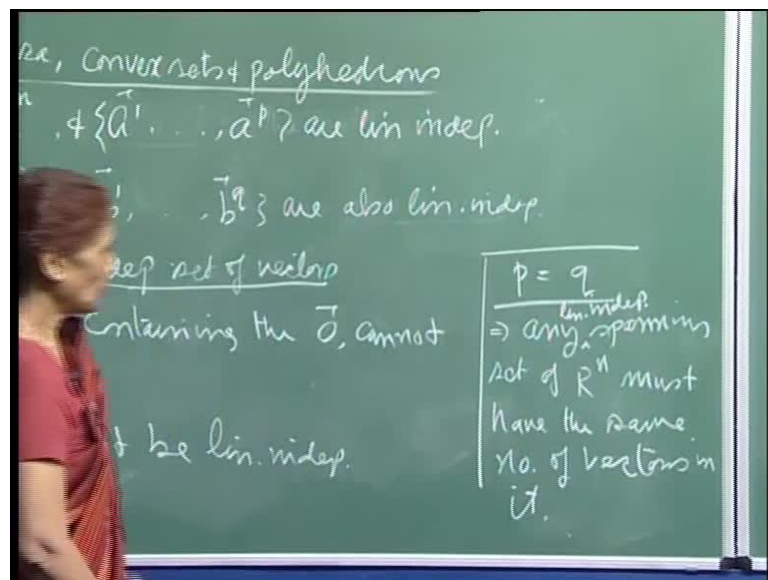 , Convex sets & polyhedrons
, & {a⃗¹, . . ., a⃗ᵖ} are lin indep.
, . . ., b⃗^q} are also lin. indep.
dep set of vectors
Containing the 0⃗, cannot
be lin. indep.
p = q
lin. indep.
⇒ any ‸ spanning
set of Rⁿ must
have the same
no. of vectors in
it.